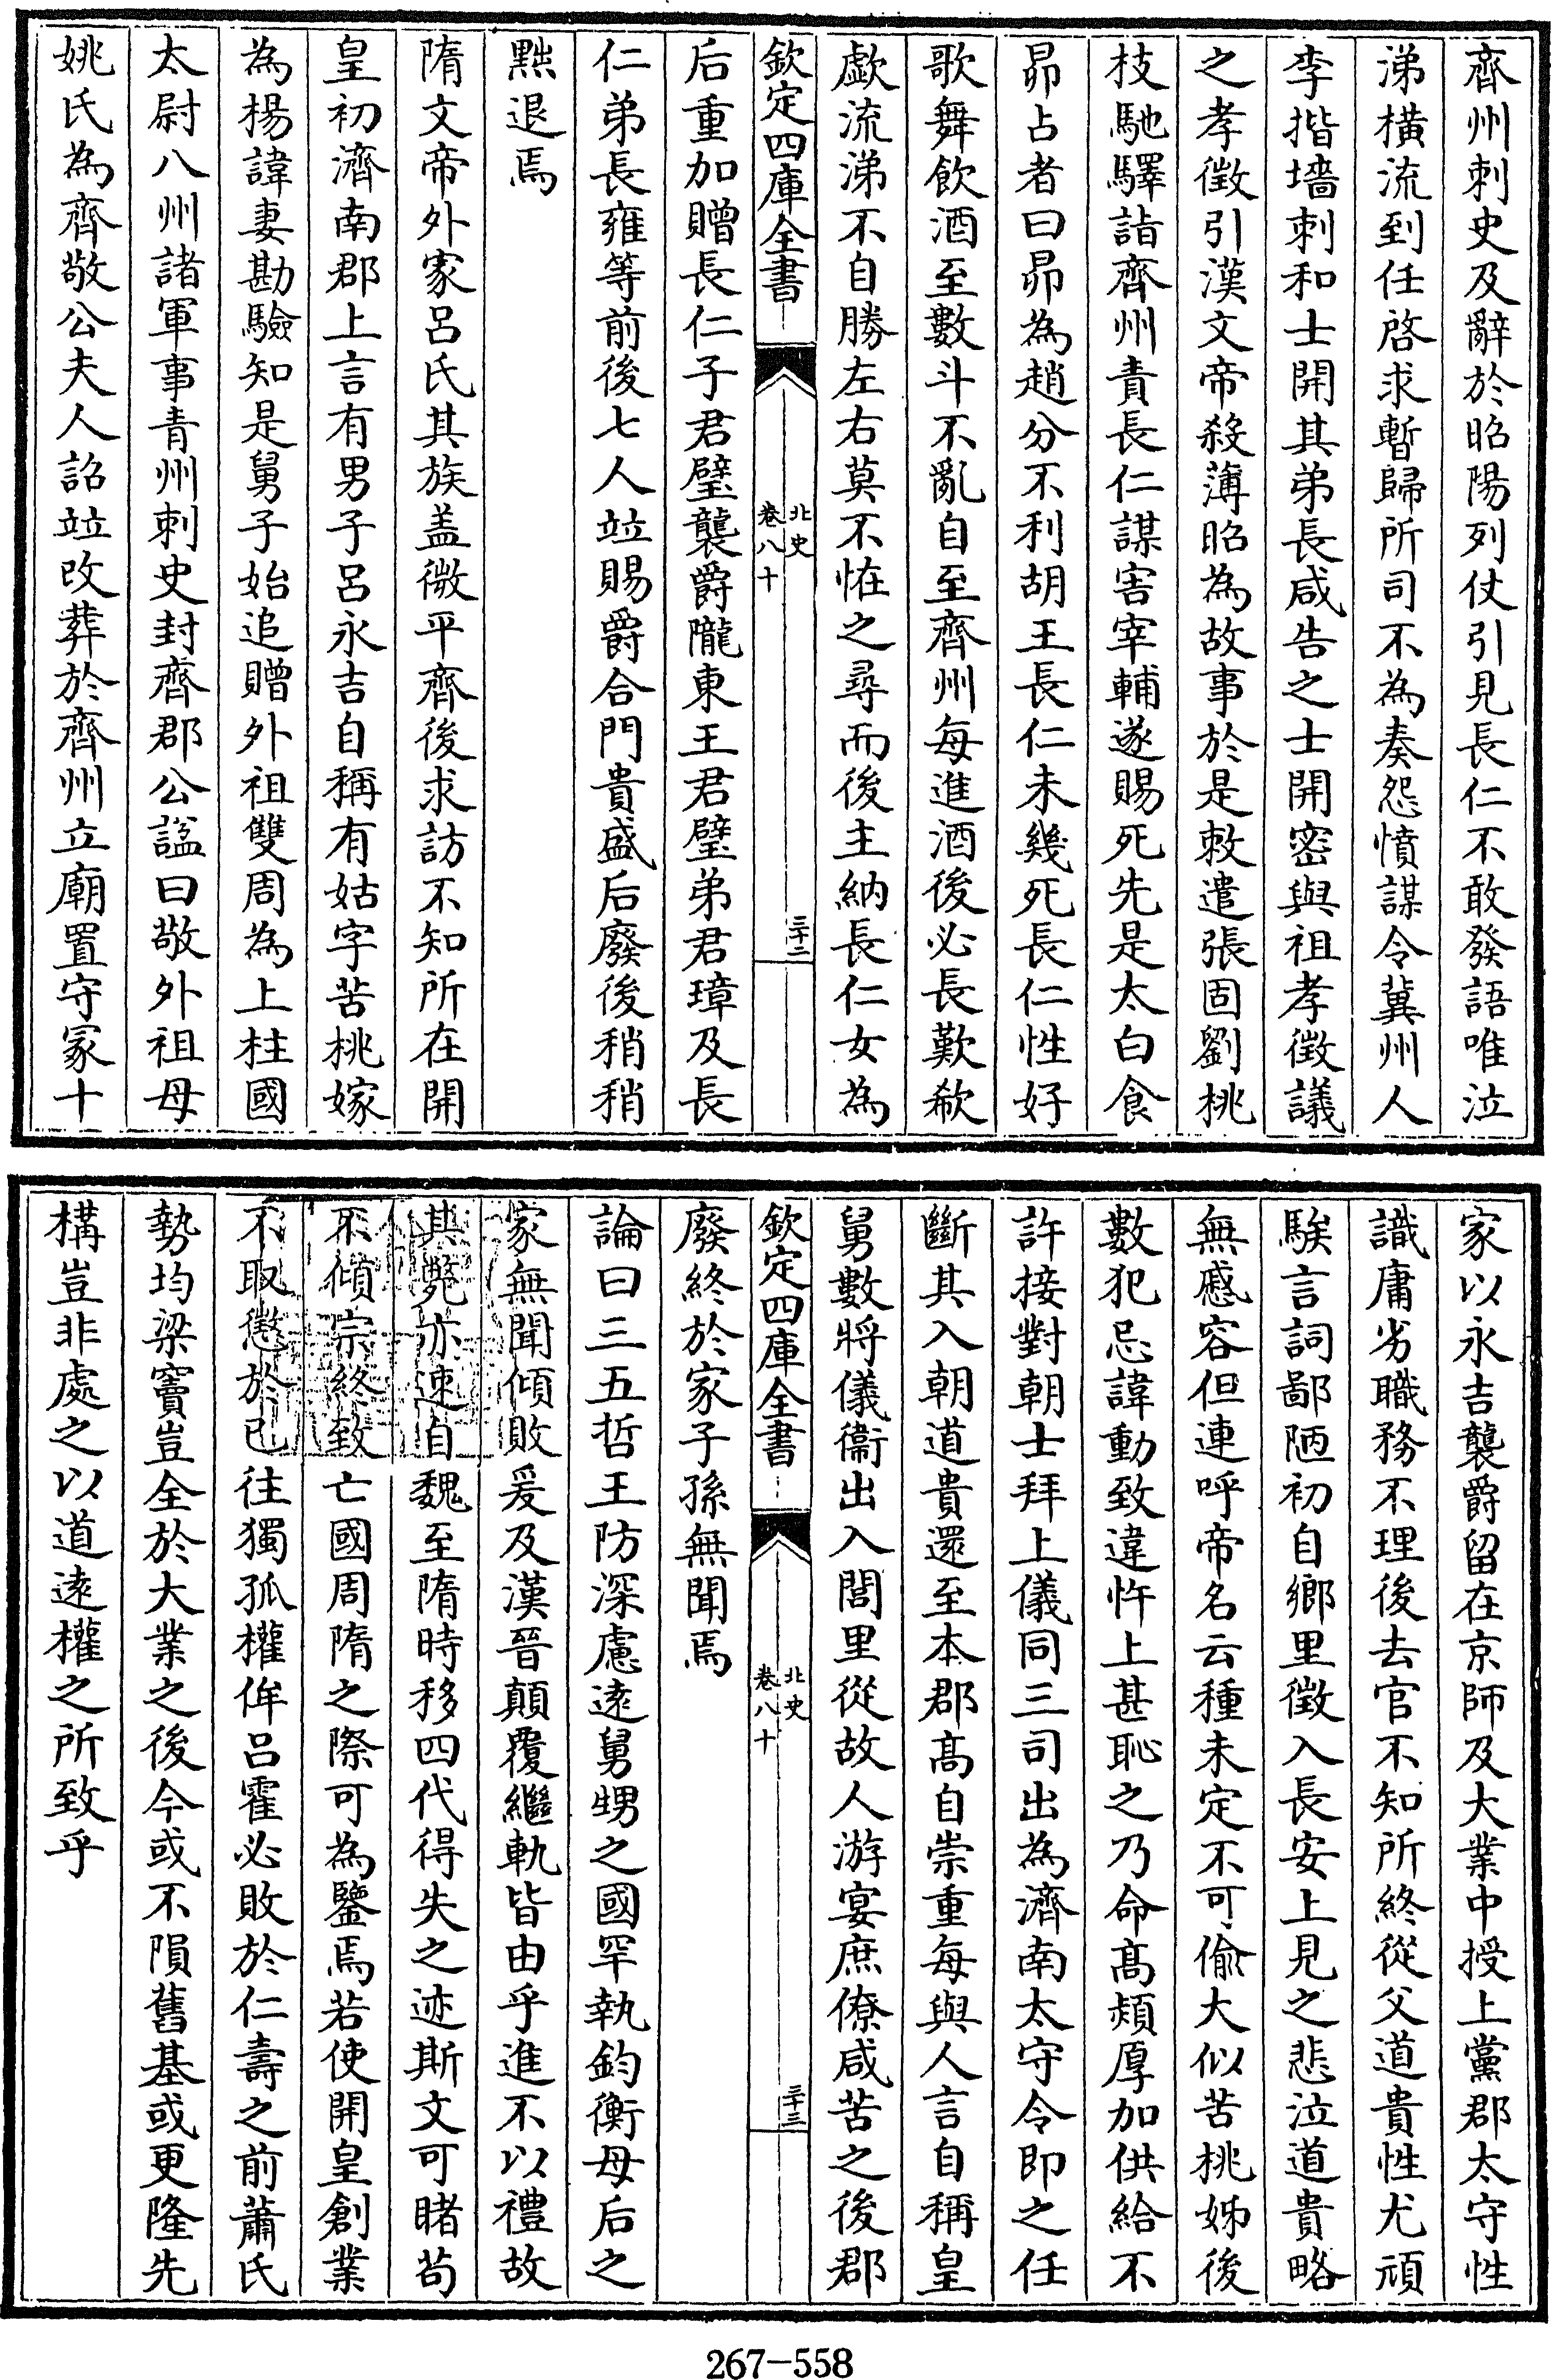 齊州刺史及辭於昭陽列仗引見長仁不敢發語唯泣
涕橫流到任啓求暫歸所司不為奏怨憤謀令冀州人
李揩墻刺和士開其弟長咸告之士開密與祖孝徵議
之孝徵引漢文帝殺薄昭為故事於是敕遣張固劉桃
枝馳驛詣齊州責長仁謀害宰輔遂賜死先是太白食
昴占者曰昴為趙分不利胡王長仁未幾死長仁性好
歌舞飲酒至數斗不亂自至齊州每進酒後必長歎欷
歔流涕不自勝左右莫不恠之尋而後主納長仁女為
欽定四庫全書
北史
卷八十
三十二
后重加贈長仁子君璧襲爵隴東王君璧弟君璋及長
仁弟長雍等前後七人竝賜爵合門貴盛后廢後稍稍
黜退焉
隋文帝外家呂氏其族盖微平齊後求訪不知所在開
皇初濟南郡上言有男子呂永吉自稱有姑字苦桃嫁
為楊諱妻勘驗知是舅子始追贈外祖雙周為上柱國
太尉八州諸軍事青州刺史封齊郡公謚曰敬外祖母
姚氏為齊敬公夫人詔竝改葬於齊州立廟置守冢十
家以永吉襲爵留在京師及大業中授上黨郡太守性
識庸劣職務不理後去官不知所終從父道貴性尤頑
騃言詞鄙陋初自鄉里徵入長安上見之悲泣道貴略
無慼容但連呼帝名云種未定不可偷大似苦桃姊後
數犯忌諱動致違忤上甚恥之乃命髙熲厚加供給不
許接對朝士拜上儀同三司出為濟南太守令即之任
斷其入朝道貴還至本郡髙自崇重每與人言自稱皇
舅數將儀衞出入閭里從故人游宴庶僚咸苦之後郡
欽定四庫全書
北史
卷八十
三十三
廢終於家子孫無聞焉
論曰三五哲王防深慮逺舅甥之國罕執鈞衡母后之
家無聞傾敗爰及漢晉顛覆繼軌皆由乎進不以禮故
其斃亦速自魏至隋時移四代得失之迹斯文可睹苟
不傾宗終致亡國周隋之際可為鑒焉若使開皇創業
不取懲於已往獨孤權侔呂霍必敗於仁壽之前蕭氏
勢均梁竇豈全於大業之後今或不隕舊基或更隆先
構豈非處之以道逺權之所致乎
267-558